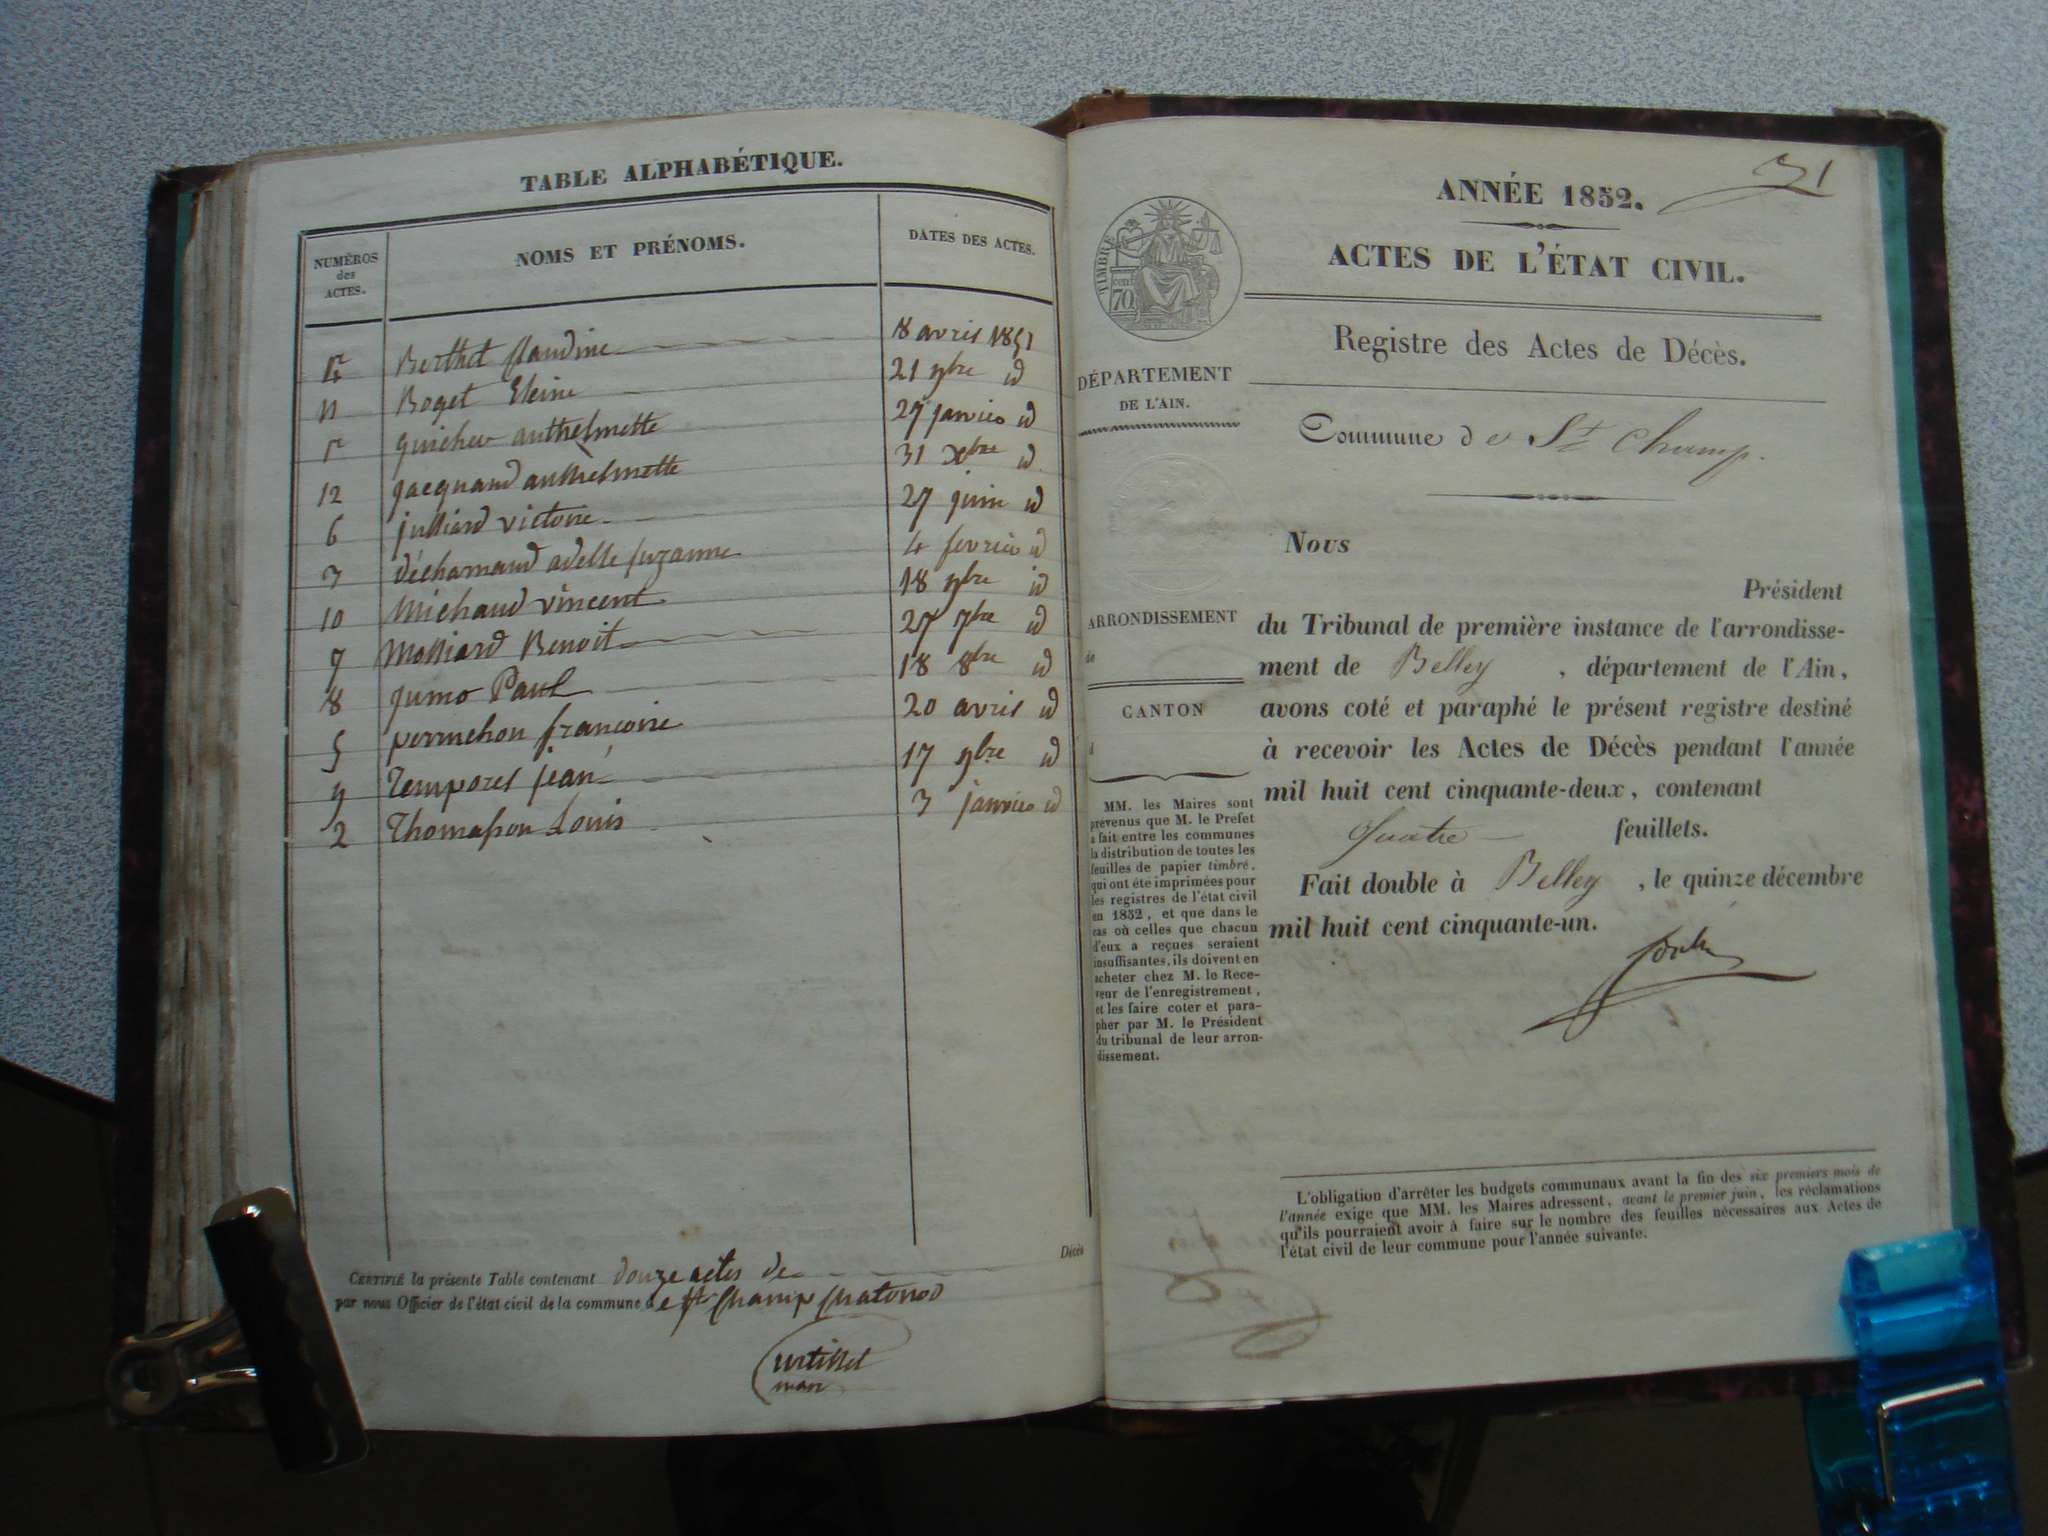 TABLE ALPHABÉTIQUE.
NUMÉROS des ACTES.
NOMS ET PRÉNOMS.
DATES DES ACTES.
4 Berthet Claudine 18 avril 1851
11 Boget 21 9bre id
1 anthelmette 27 janvier id
12 jacquand anthelmette 31 Xbre id
6 julliard victoire 27 juin id
3 déchamaud adelle suzanne 4 fevrier id
10 Michaud vincent 18 9bre id
7 Molliard Benoit 27 7bre id
8 jumo Paul 18 8bre id
5 perruchon françoise 20 avril id
9 Temporel jean 17 9bre id
2 Thomasson Louis 3 janvier id
Décès
CERTIFIÉ la présente Table contenant douze actes de
par nous Officier de l'état civil de la commune de St Champ Chatonod
31
ANNÉE 1852.
ACTES DE L'ÉTAT CIVIL.
TIMBRE
cent 70
Registre des Actes de Décès.
DÉPARTEMENT
DE L'AIN.
Commune de St Champ.
Nous
Président
du Tribunal de première instance de l'arrondisse-
ment de Belley, département de l'Ain,
avons coté et paraphé le présent registre destiné
à recevoir les Actes de Décès pendant l'année
mil huit cent cinquante-deux, contenant
quatre feuillets.
Fait double à Belley, le quinze décembre
mil huit cent cinquante-un.
ARRONDISSEMENT
de
CANTON
d
MM. les Maires sont
prévenus que M. le Prefet
a fait entre les communes
la distribution de toutes les
feuilles de papier timbré,
qui ont été imprimées pour
les registres de l'état civil
en 1852, et que dans le
cas où celles que chacun
d'eux a reçues seraient
insuffisantes, ils doivent en
acheter chez M. le Rece-
veur de l'enregistrement,
et les faire coter et para-
pher par M. le Président
du tribunal de leur arron-
dissement.
L'obligation d'arrêter les budgets communaux avant la fin des six premiers mois de
l'année exige que MM. les Maires adressent, avant le premier juin, les réclamations
qu'ils pourraient avoir à faire sur le nombre des feuilles nécessaires aux Actes de
l'état civil de leur commune pour l'année suivante.